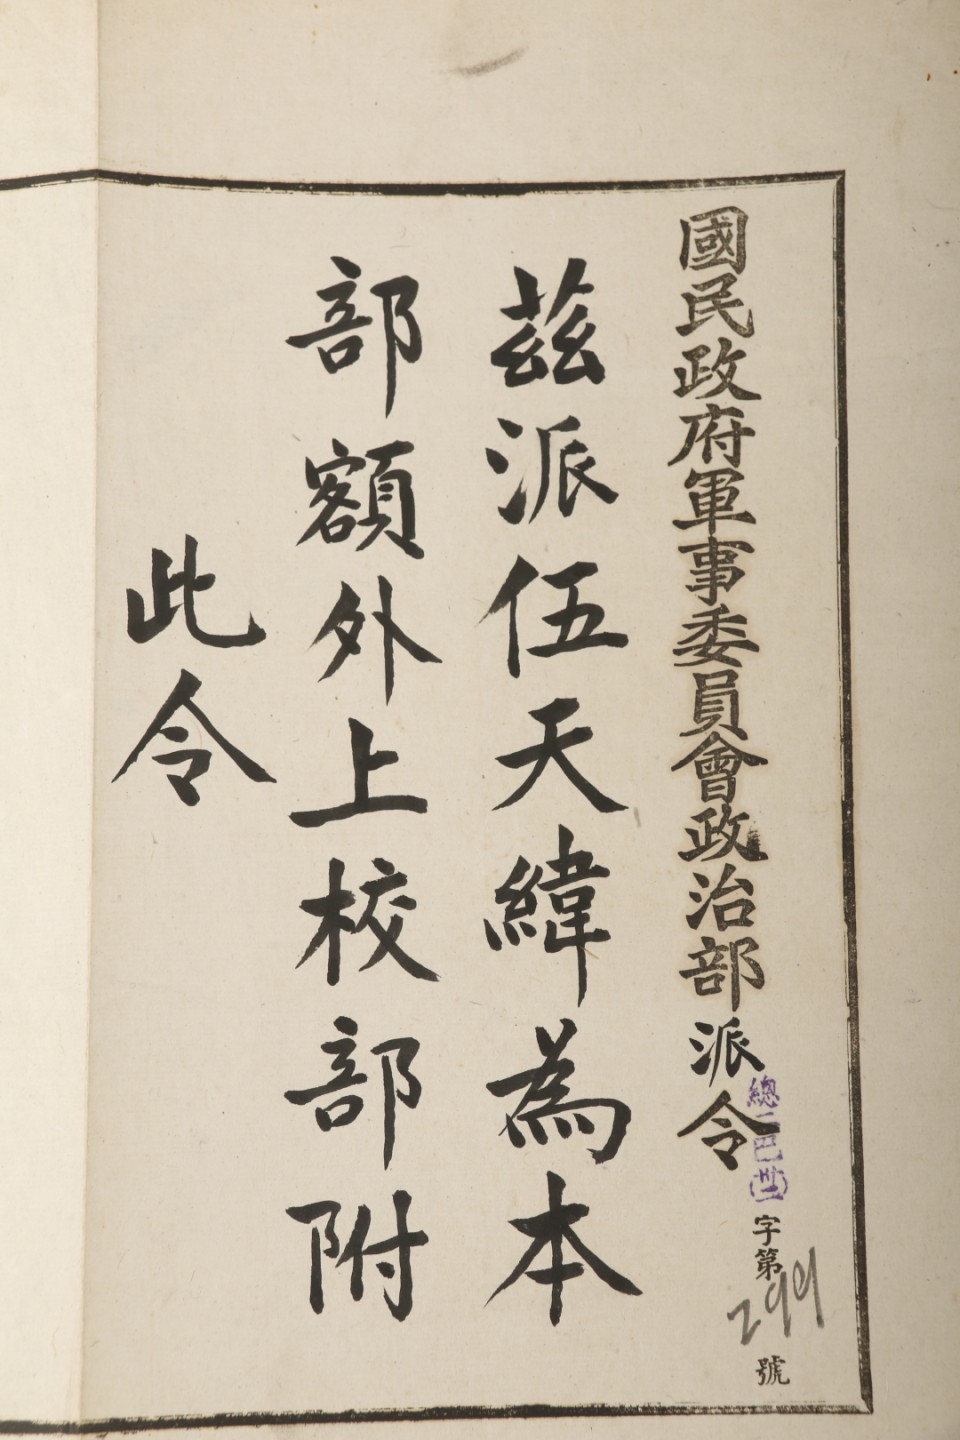 國民政府軍事委員會政治部派令
總二巴
字第299號
茲派伍天緯為本
部額外上校部附
此令